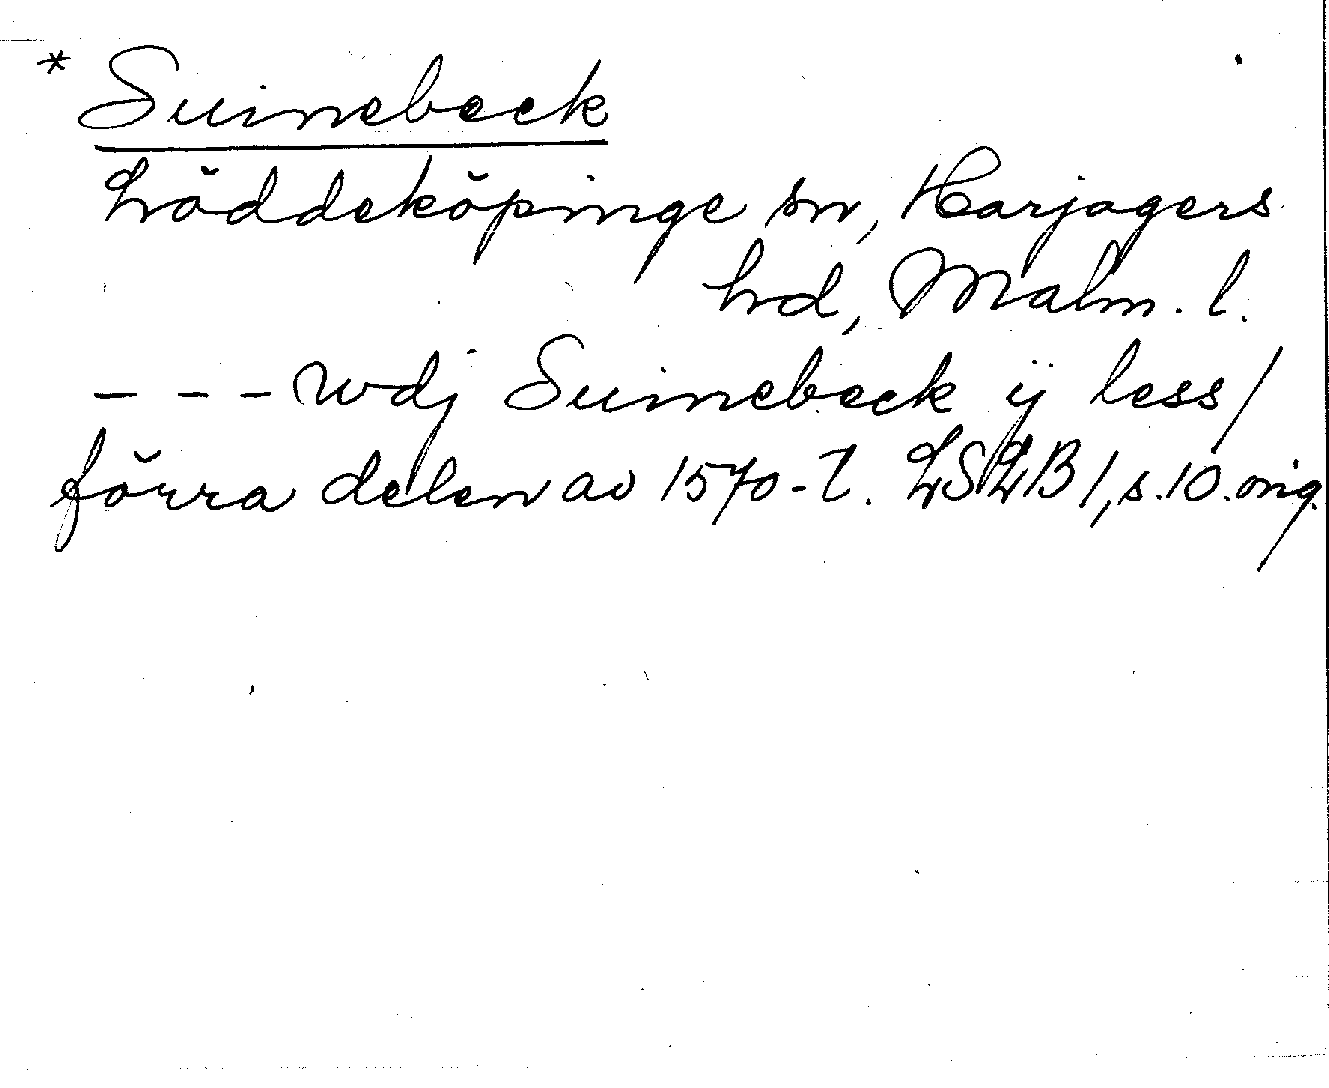 * Suinebeck
Löddeköpinge sn, Harjagers
hd, Malm. l.
- - - wdj Suinebeck ij less/
förra delen av 1570-t. LSLB 1, s. 10. orig.